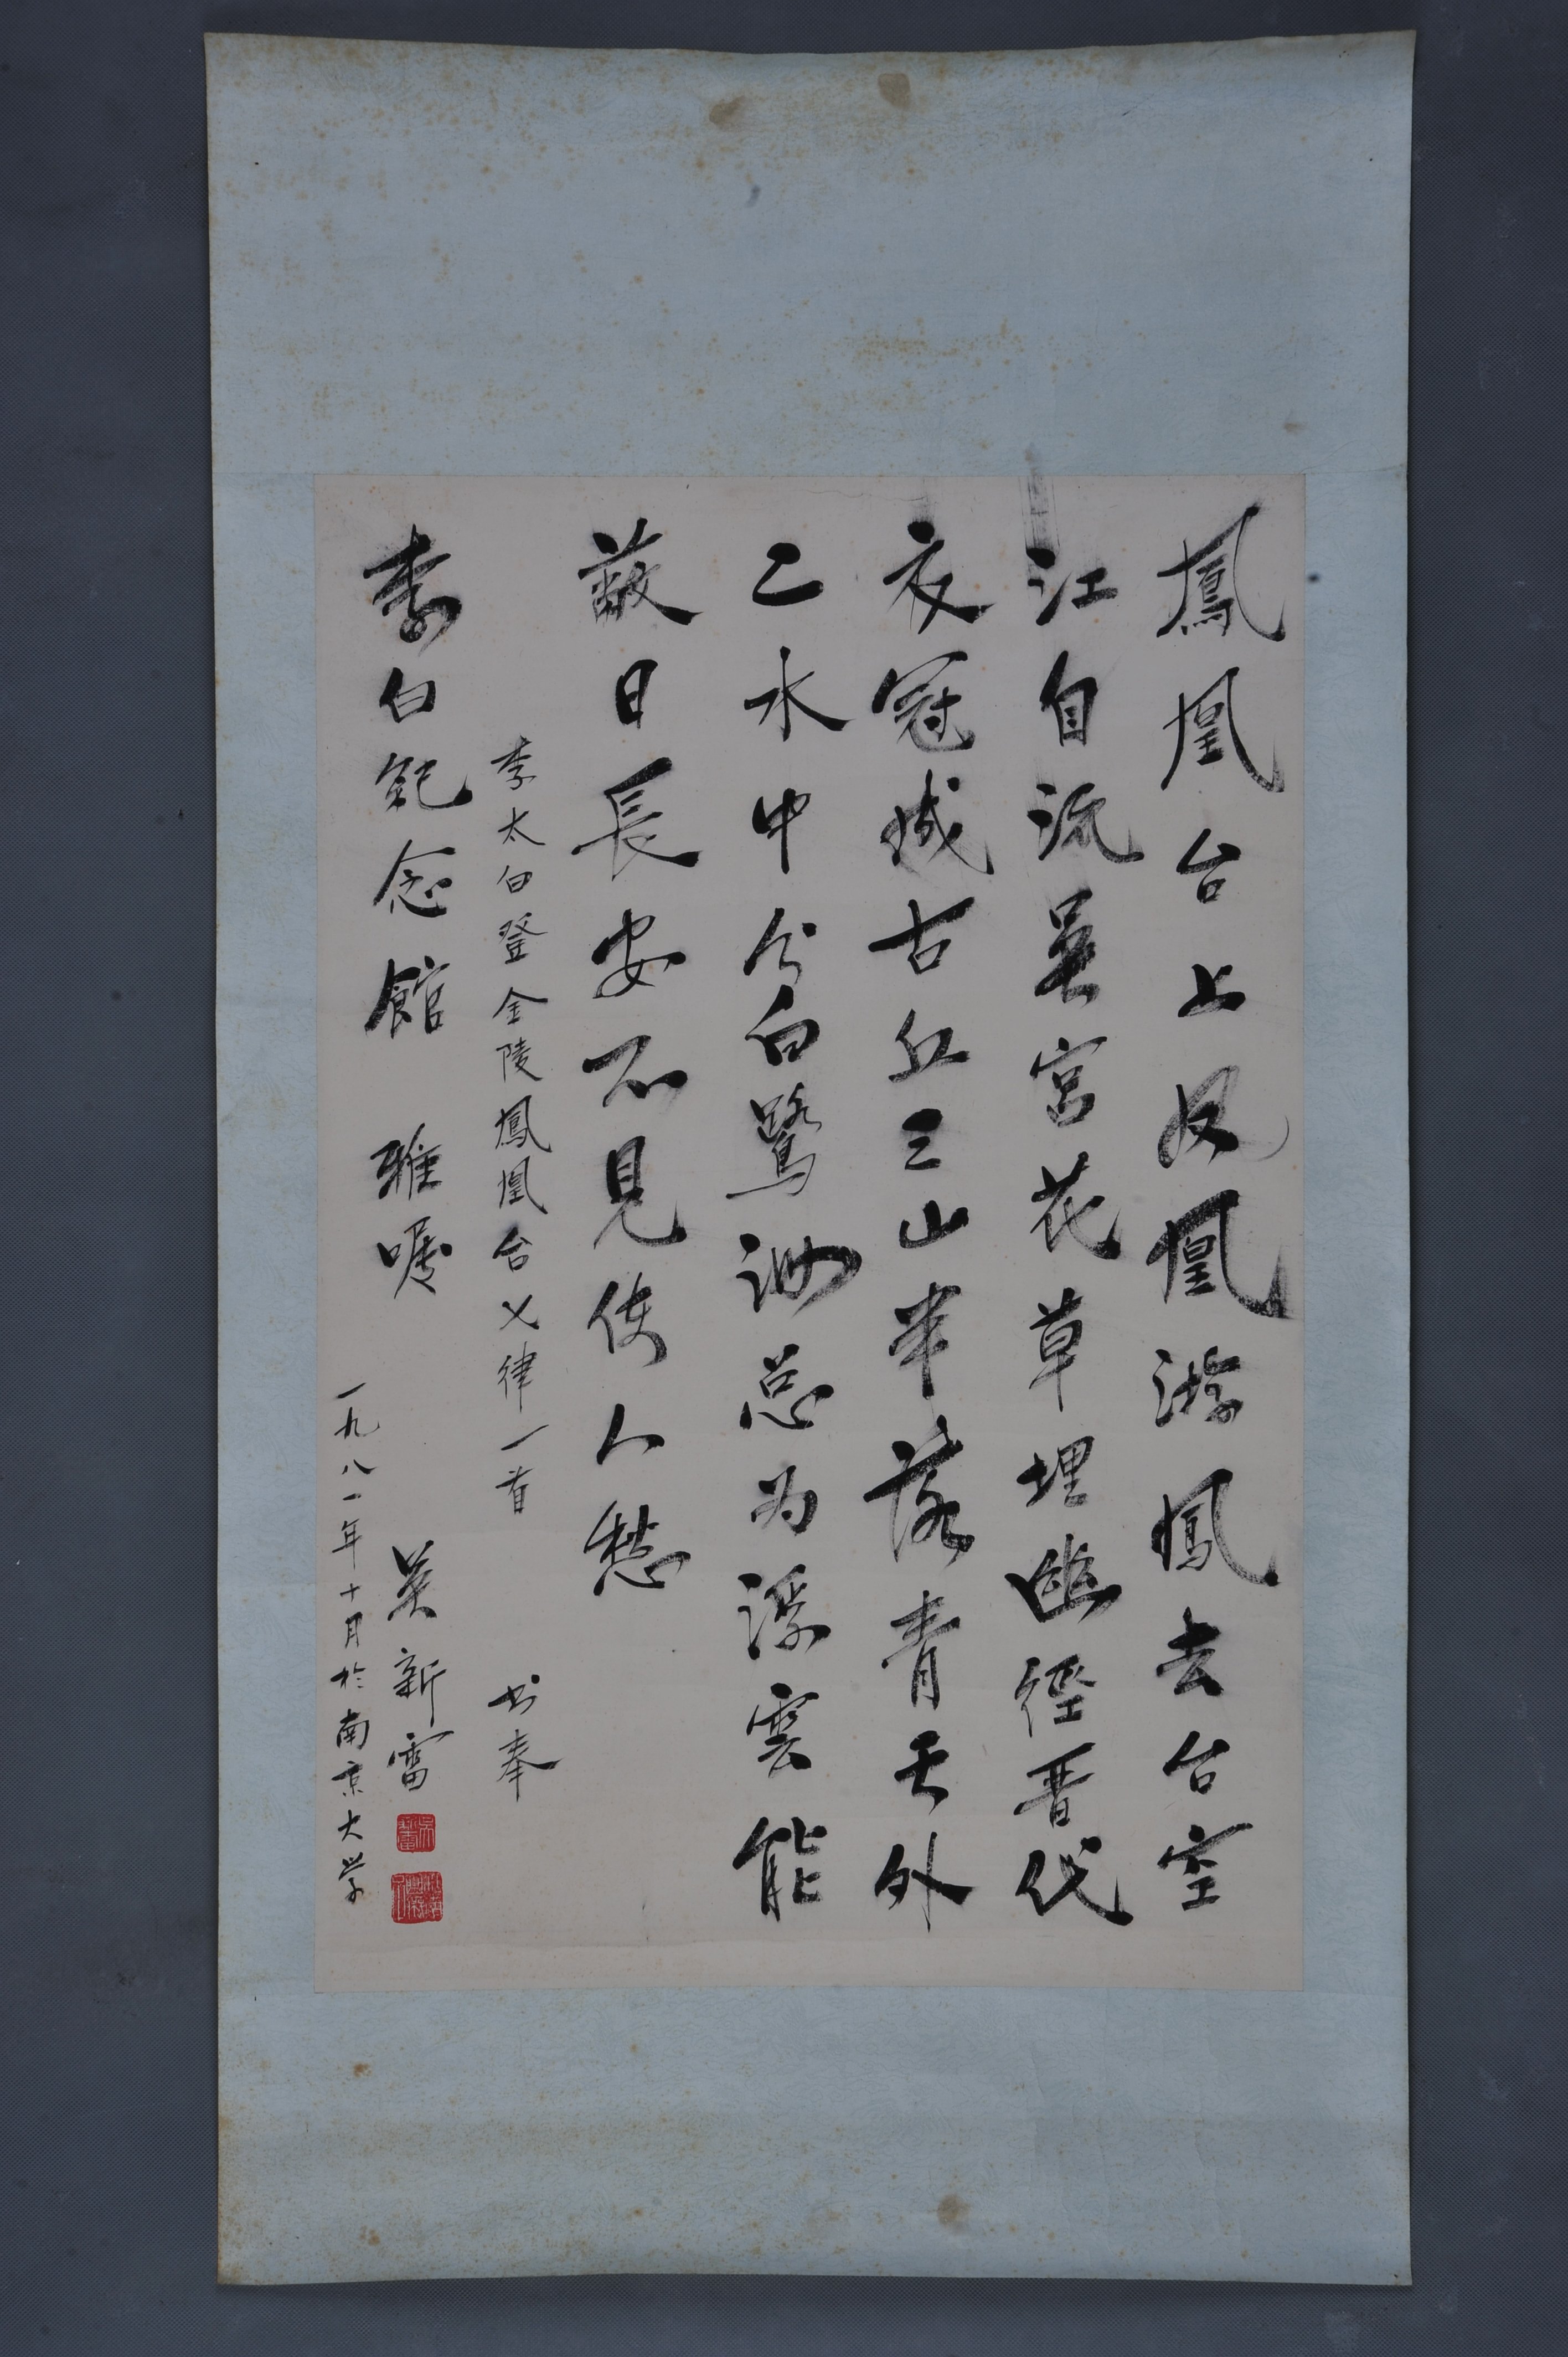 鳳凰台上凤凰游鳳去台空
江自流吴宫花草埋幽徑晋代
衣冠成古丘三山半落青天外
二水中分白鷺洲总为浮雲能
蔽日長安不見使人愁
李太白登金陵鳳凰台七律一首 书奉
李白紀念館 雅嘱
吴新雷
一九八一年十月於南京大学